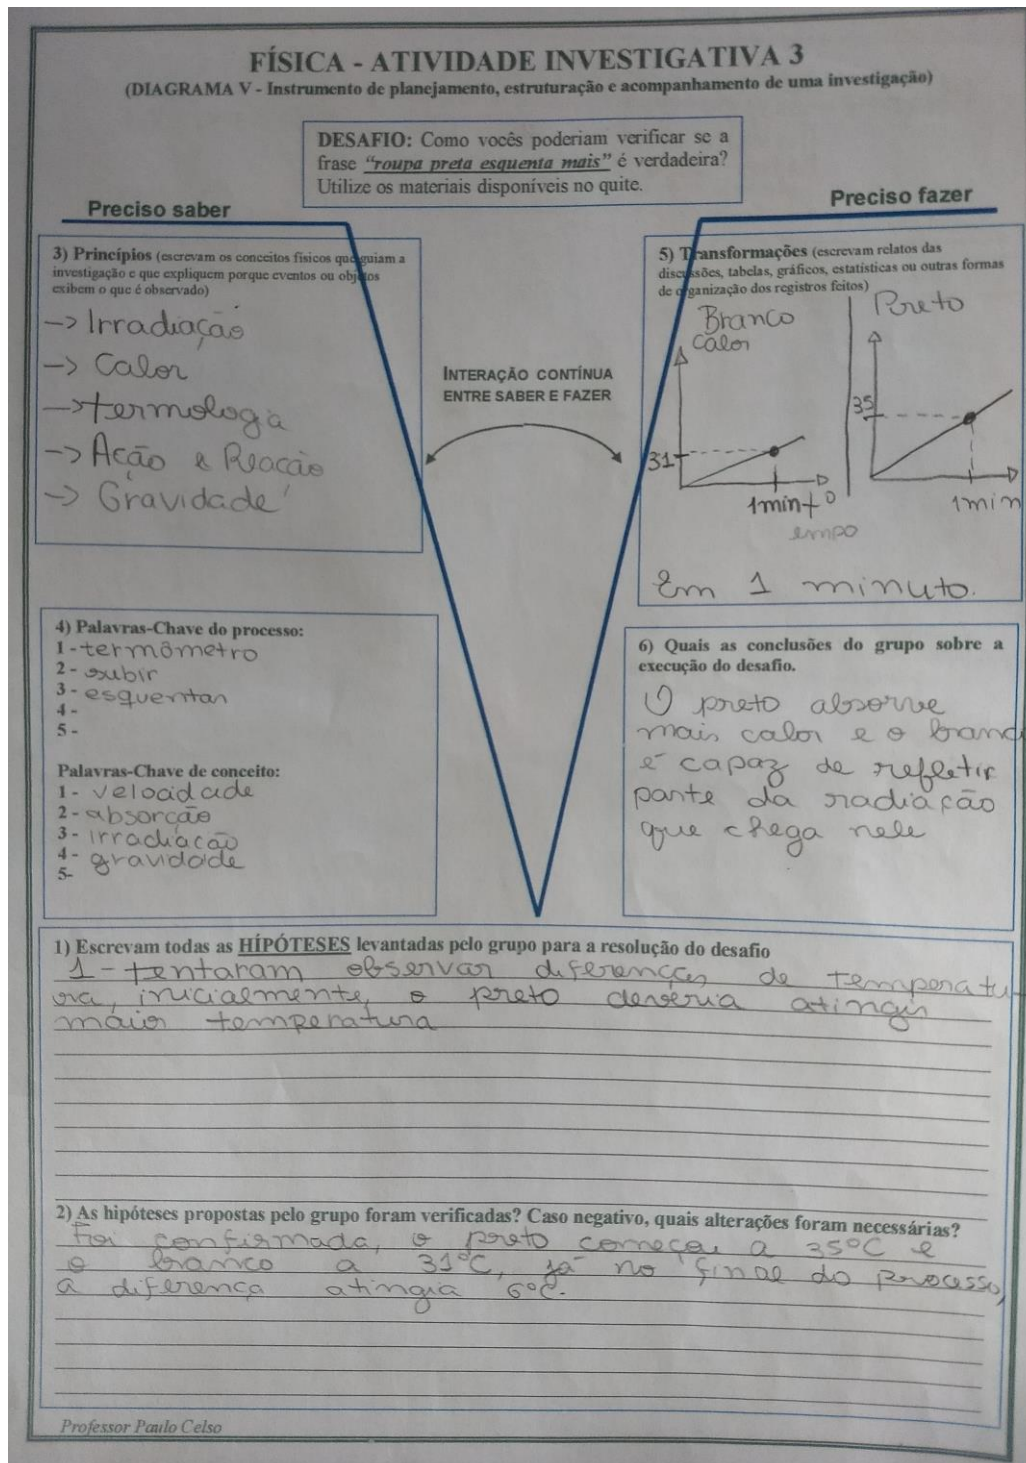 FÍSICA - ATIVIDADE INVESTIGATIVA 3
(DIAGRAMA V - Instrumento de planejamento, estruturação e acompanhamento de uma investigação)
DESAFIO: Como vocês poderiam verificar se a
frase “roupa preta esquenta mais” é verdadeira?
Utilize os materiais disponíveis no quite.
Preciso saber
Preciso fazer
3) Princípios (escrevam os conceitos físicos que guiam a
investigação e que expliquem porque eventos ou objetos
exibem o que é observado)
-> Irradiação
-> Calor
-> termologia
-> Ação e Reação
-> Gravidade
INTERAÇÃO CONTÍNUA
ENTRE SABER E FAZER
5) Transformações (escrevam relatos das
discussões, tabelas, gráficos, estatísticas ou outras formas
de organização dos registros feitos)
Branco
Calor
31
1min
tempo
Preto
35
1min
Em 1 minuto.
4) Palavras-Chave do processo:
1 - termômetro
2 - subir
3 - esquentar
4 -
5 -
Palavras-Chave de conceito:
1 - velocidade
2 - absorção
3 - irradiação
4 - gravidade
5-
6) Quais as conclusões do grupo sobre a
execução do desafio.
O preto absorve
mais calor e o branc
é capaz de refletir
parte da radiação
que chega nele
1) Escrevam todas as HÍPÓTESES levantadas pelo grupo para a resolução do desafio
1 - tentaram observar diferenças de temperatu-
ra, inicialmente, o preto deveria atingir
maior temperatura
2) As hipóteses propostas pelo grupo foram verificadas? Caso negativo, quais alterações foram necessárias?
Foi confirmada, o preto começou a 35°C e
o branco a 31°C, já no final do processo,
a diferença atingia 6°C.
Professor Paulo Celso